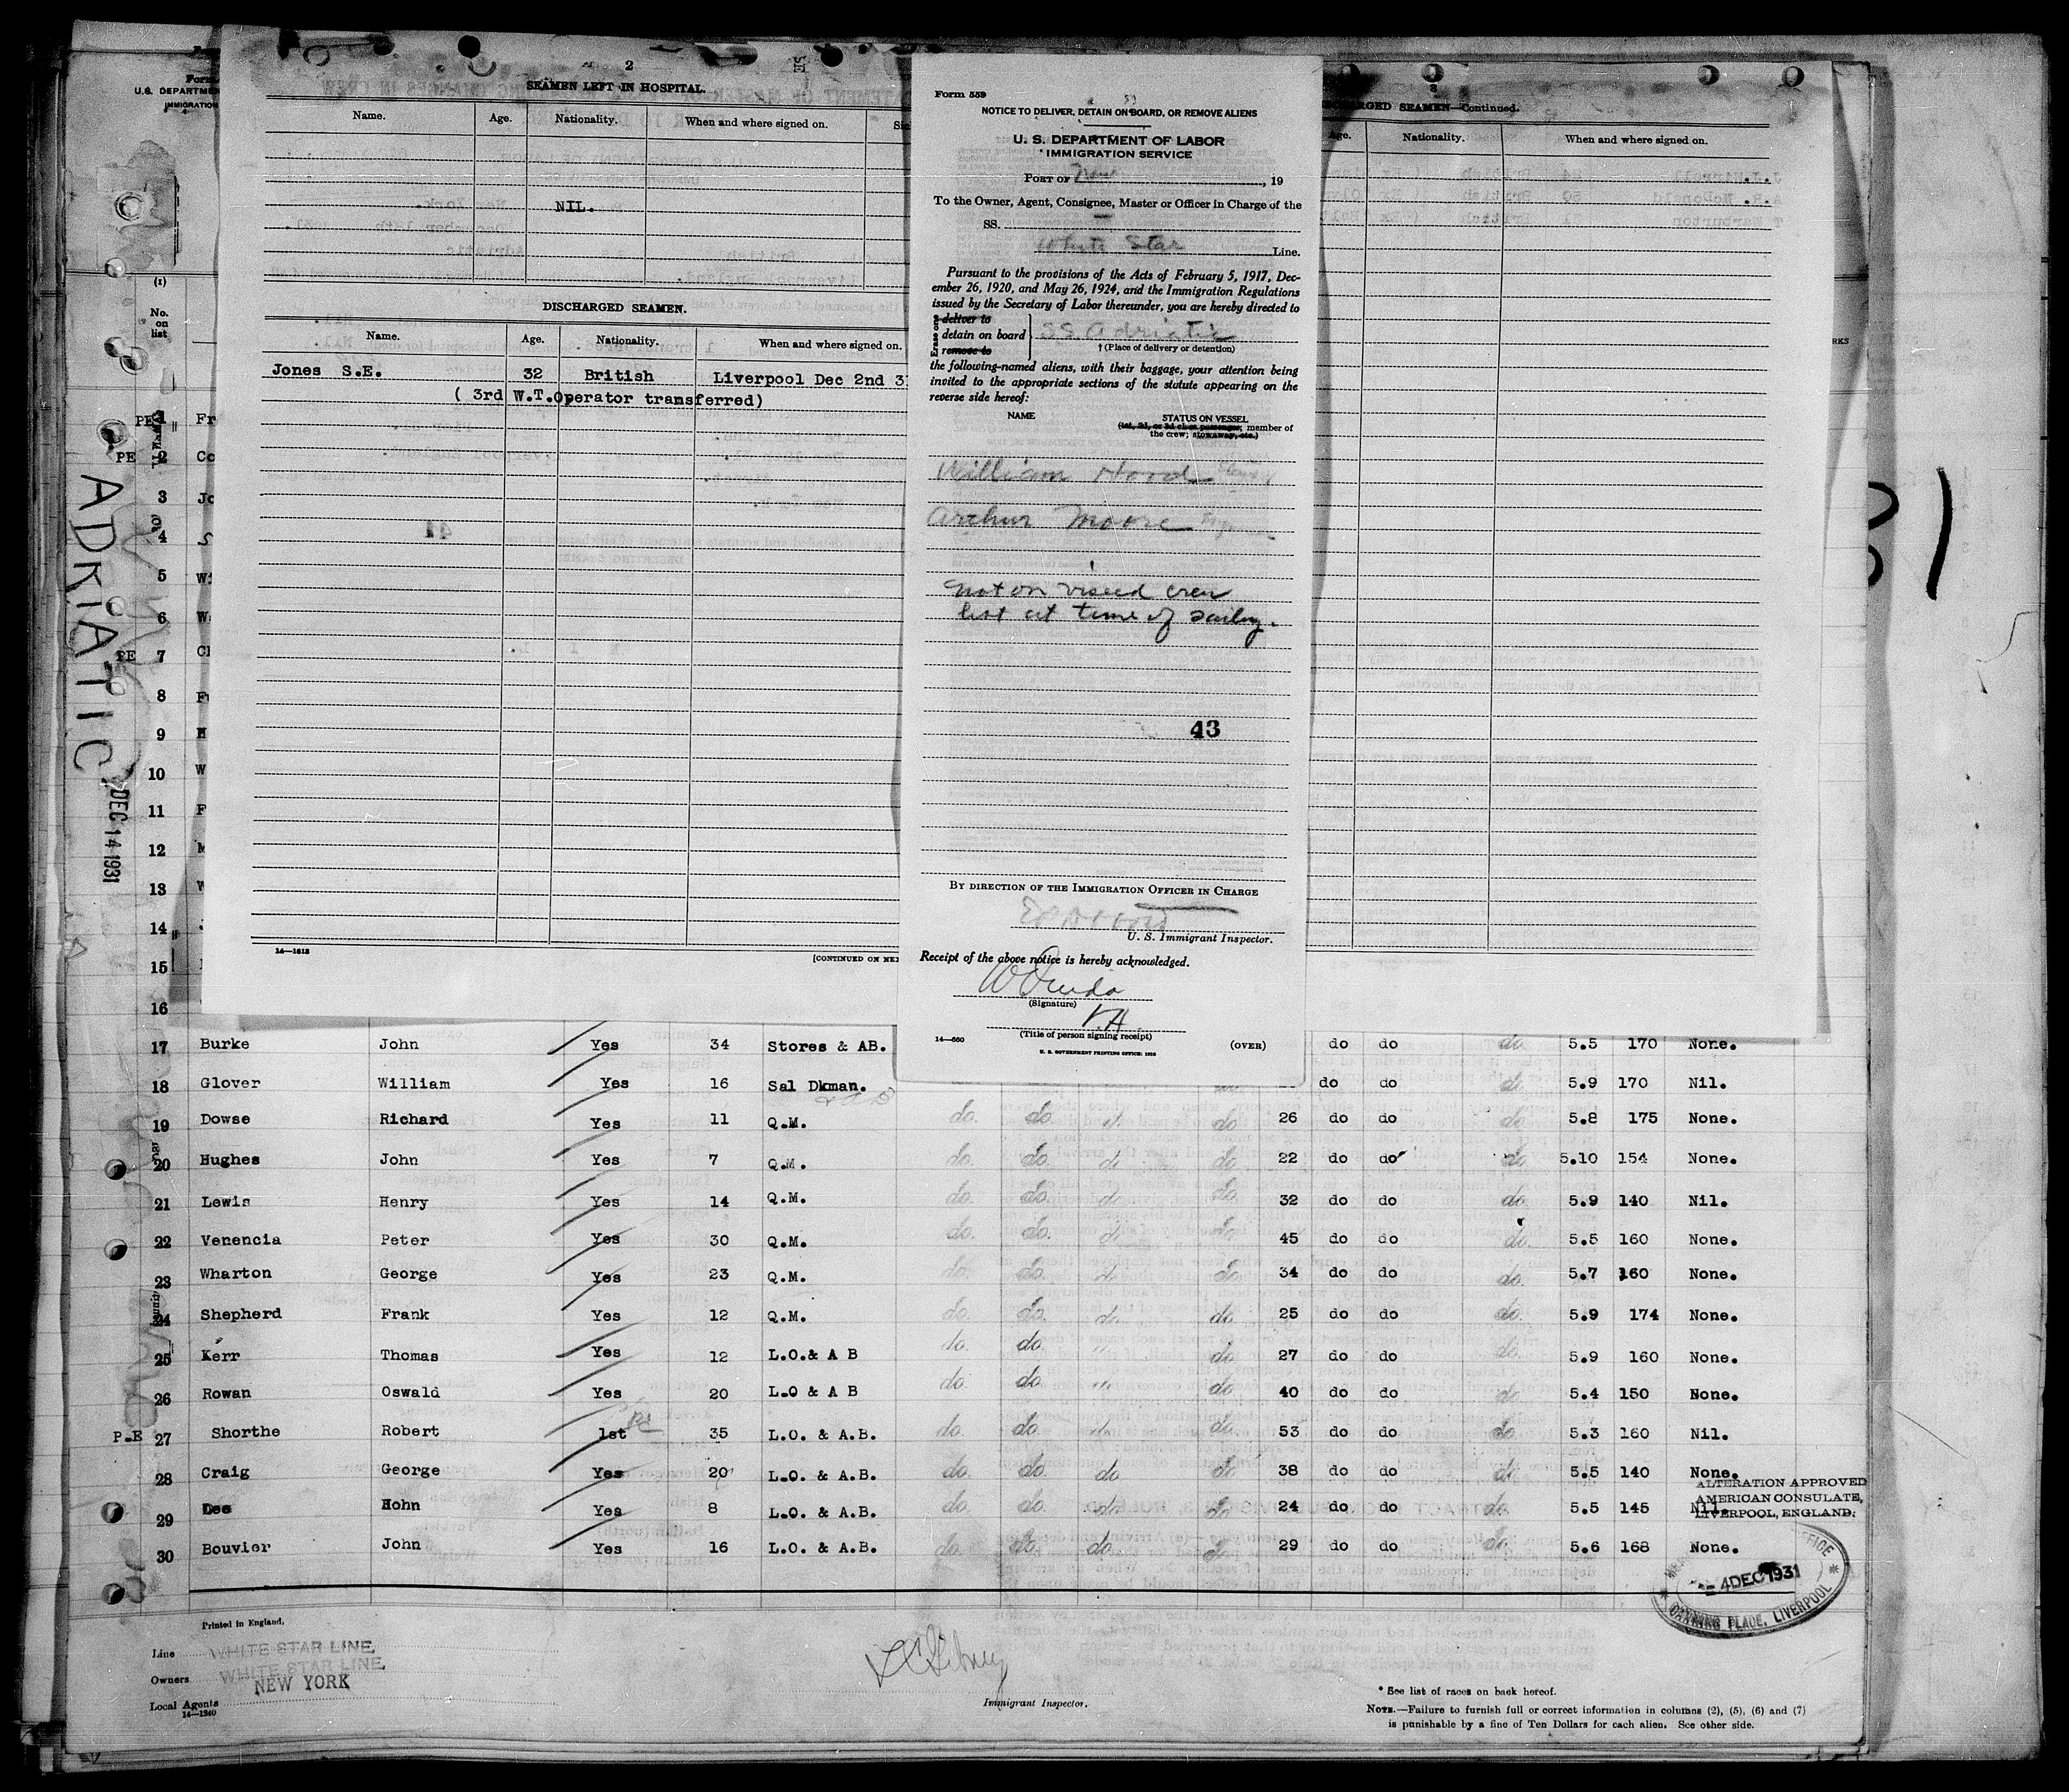 Form
U.S. DEPARTMEN
IMMIGRATION
(1)
No.
on
list
ADRIATIC
DEC 14 1931
PE 1 Fr
PE 2 Co
3 Jo
4
5 Wi
6 Wa
PE 7 Cl
8 Fu
9 H
10 W
11 F
12 M
13 W
14 J
15
16
2
SEAMEN LEFT IN HOSPITAL.
Name. Age. Nationality. When and where signed on.
NIL.
DISCHARGED SEAMEN.
Name. Age. Nationality. When and where signed on.
Jones S.E. 32 British Liverpool Dec 2nd 3
( 3rd W.T.Operator transferred)
14—1613
[CONTINUED ON NE
Form 559
NOTICE TO DELIVER, DETAIN ON BOARD, OR REMOVE ALIENS
U. S. DEPARTMENT OF LABOR
IMMIGRATION SERVICE
PORT OF , 19
To the Owner, Agent, Consignee, Master or Officer in Charge of the
SS.
White Star Line.
Pursuant to the provisions of the Acts of February 5, 1917, Dec-
ember 26, 1920, and May 26, 1924, and the Immigration Regulations
issued by the Secretary of Labor thereunder, you are hereby directed to
Erase one
deliver to
detain on board SS Adriatic
remove to † (Place of delivery or detention)
the following-named aliens, with their baggage, your attention being
invited to the appropriate sections of the statute appearing on the
reverse side hereof:
NAME STATUS ON VESSEL
(1st, 2d, or 3d class passenger; member of
the crew; stowaway, etc.)
William Hood
Arthur Moore
not on visaed crew
list at time of sailing.
43
BY DIRECTION OF THE IMMIGRATION OFFICER IN CHARGE
U. S. Immigrant Inspector.
Receipt of the above notice is hereby acknowledged.
(Signature)
(Title of person signing receipt)
14—550 (OVER)
U. S. GOVERNMENT PRINTING OFFICE:
3
SCHARGED SEAMEN—Continued.
Age. Nationality. When and where signed on.
RKS
17 Burke John Yes 34 Stores & AB. do do do. 5.5 170 None.
18 Glover William Yes 16 Sal Dkman. do do do. 5.9 170 Nil.
19 Dowse Richard Yes 11 Q.M. do. do. do 26 do do do. 5.8 175 None.
20 Hughes John Yes 7 Q.M. do. do. do do 22 do do do 5.10 154 None.
21 Lewis Henry Yes 14 Q.M. do. do. do do. 32 do do do. 5.9 140 Nil.
22 Venencia Peter Yes 30 Q.M. do. do. do do. 45 do do do. 5.5 160 None.
23 Wharton George Yes 23 Q.M. do do. do do 34 do do do. 5.7 160 None.
24 Shepherd Frank Yes 12 Q.M. do. do. do. do 25 do do do. 5.9 174 None.
25 Kerr Thomas Yes 12 L.O.& A B do. do. do 27 do do do. 5.9 160 None.
26 Rowan Oswald Yes 20 L.O & A B do. do. do. 40 do do do 5.4 150 None.
P.E 27 Shorthe Robert 1st 35 L.O. & A.B. do. do. do. do. 53 do do do. 5.3 160 Nil.
28 Craig George Yes 20 L.O. & A.B. do. do. do do 38 do do do. 5.5 140 None.
29 Dee Hohn Yes 8 L.O. & A.B. do. do. do. do 24 do do do. 5.5 145 Nil.
30 Bouvier John Yes 16 L.O. & A.B. do. do. do. do 29 do do do. 5.6 168 None.
ALTERATION APPROVED
AMERICAN CONSULATE,
LIVERPOOL, ENGLAND.
4 DEC 1931
CANNING PLACE, LIVERPOOL
Printed in England.
Line WHITE STAR LINE.
Owners WHITE STAR LINE.
Local Agents NEW YORK
14—1240
Immigrant Inspector.
* See list of races on back hereof.
NOTE.—Failure to furnish full or correct information in columns (2), (5), (6) and (7)
is punishable by a fine of Ten Dollars for each alien. See other side.